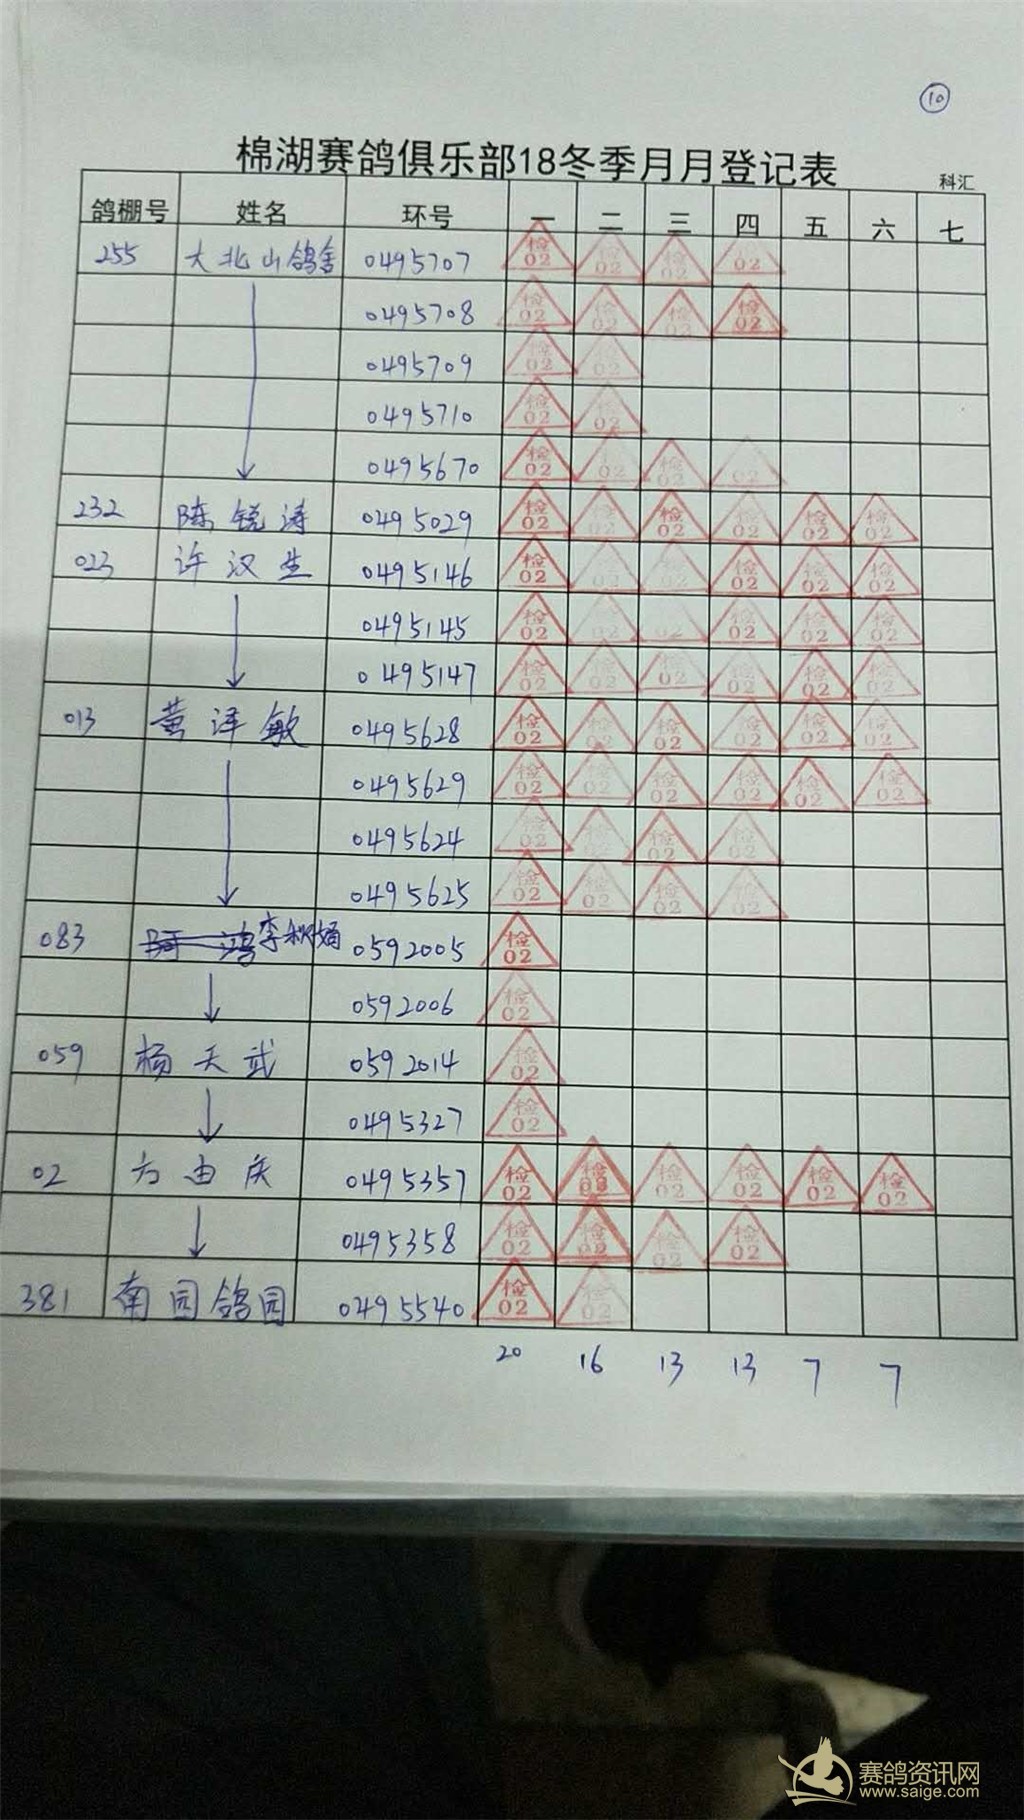 10
棉湖赛鸽俱乐部18冬季月月登记表
科汇
鸽棚号 姓名 环号 一 二 三 四 五 六 七
255 大北山鸽舍 0495707 检02 检02 检02 02
0495708 检02 检02 检02 检02
0495709 检02 检02
0495710 检02 检02
0495670 检02 检02 检02 02
232 陈锐涛 0495029 检02 检02 检02 检02 检02 检02
023 许汉生 0495146 检02 02 02 检02 检02 检02
0495145 检02 02 02 检02 检02 检02
0495147 检02 检02 检02 检02 检02 检02
013 黄泽敏 0495628 检02 检02 检02 检02 检02 检02
0495629 检02 检02 检02 检02 检02 检02
0495624 检02 检02 检02 检02
0495625 检02 检02 检02 检02
083 李 0592005 检02
0592006 检02
059 杨天武 0592014 检02
0495327 检02
02 方由庆 0495357 检02 检02 检02 检02 检02 检02
0495358 检02 检02 检02 检02
381 南园鸽园 0495540 检02 检02
20 16 13 13 7 7
赛鸽资讯网
www.saige.com